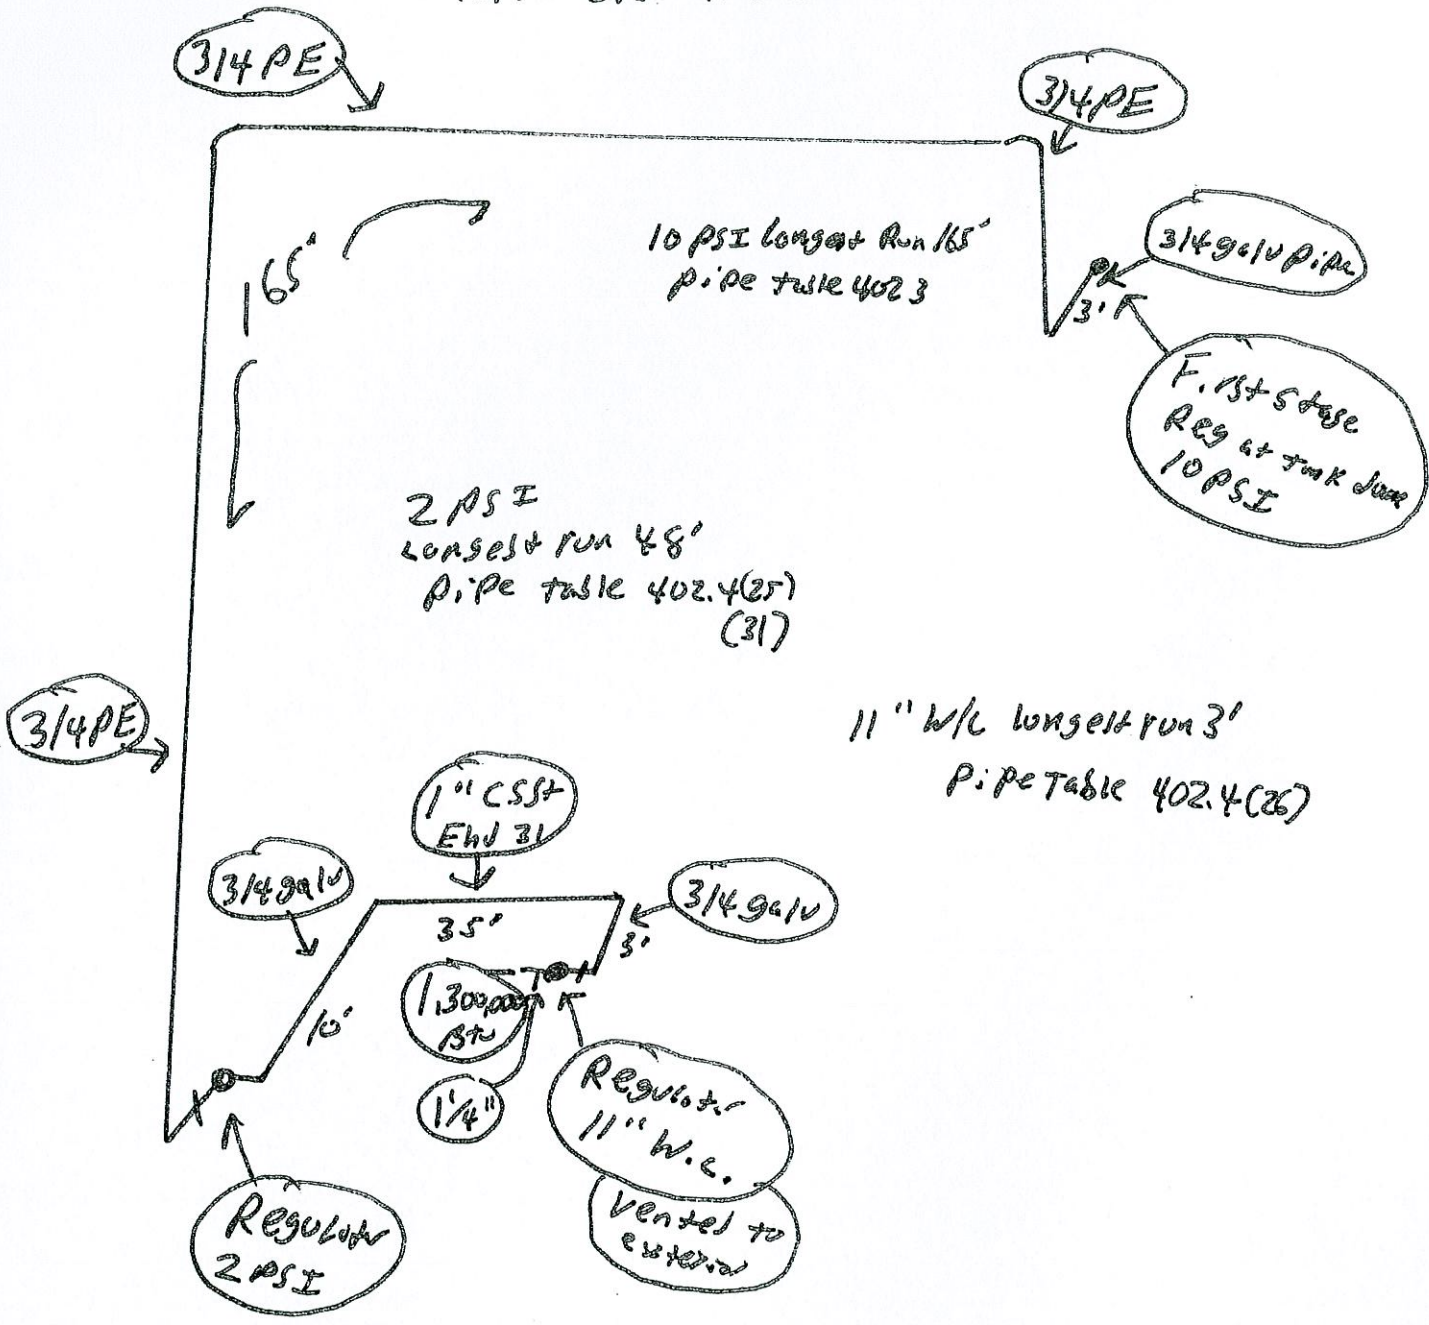 3/4 PE
3/4 PE
165'
10 PSI Longest Run 165'
pipe table 402 3
3/4 galv pipe
3'
First stage
Reg at tank dome
10 PSI
2 PSI
Longest run 48'
pipe table 402.4(25)
(31)
3/4 PE
11" W/C longest run 3'
pipe Table 402.4(26)
1" CSST
Ehd 31
3/4 galv
3/4 galv
35'
3'
10'
1,300,000
Btu
1 1/4"
Regulator
11" W.C.
Vented to
exterior
Regulator
2 PSI